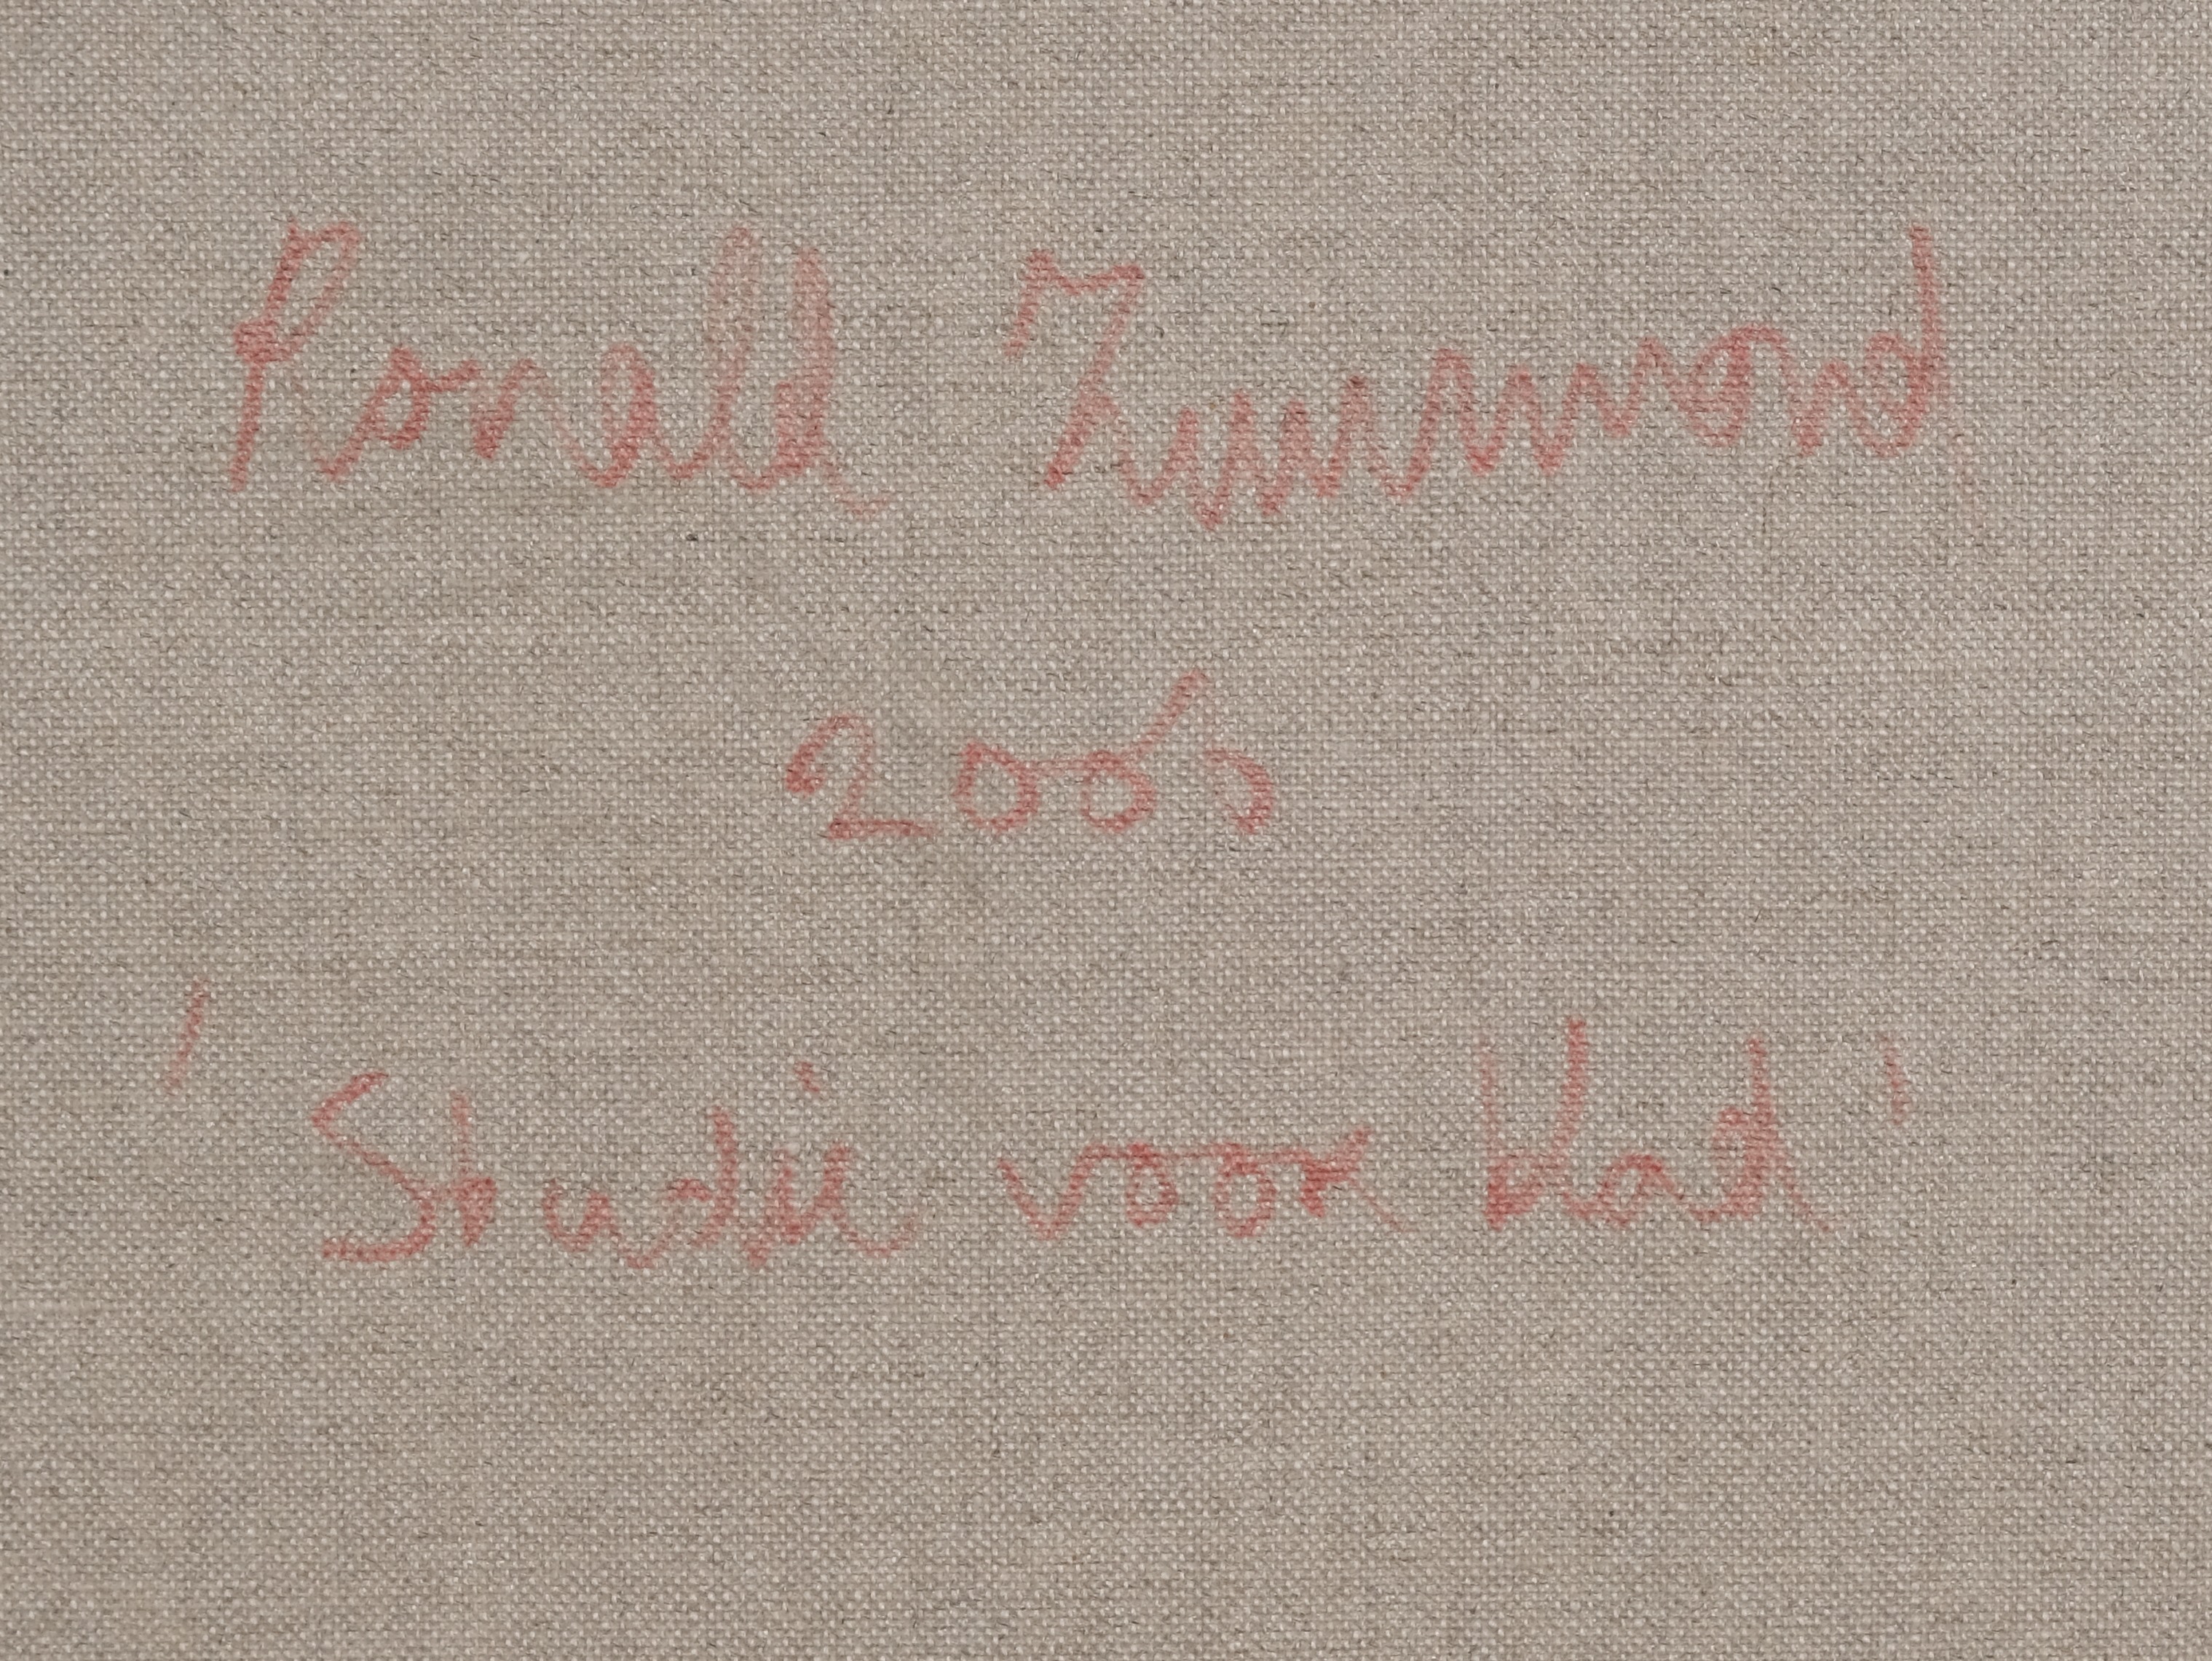 Ronald Zuurmond
2005
'Studie voor